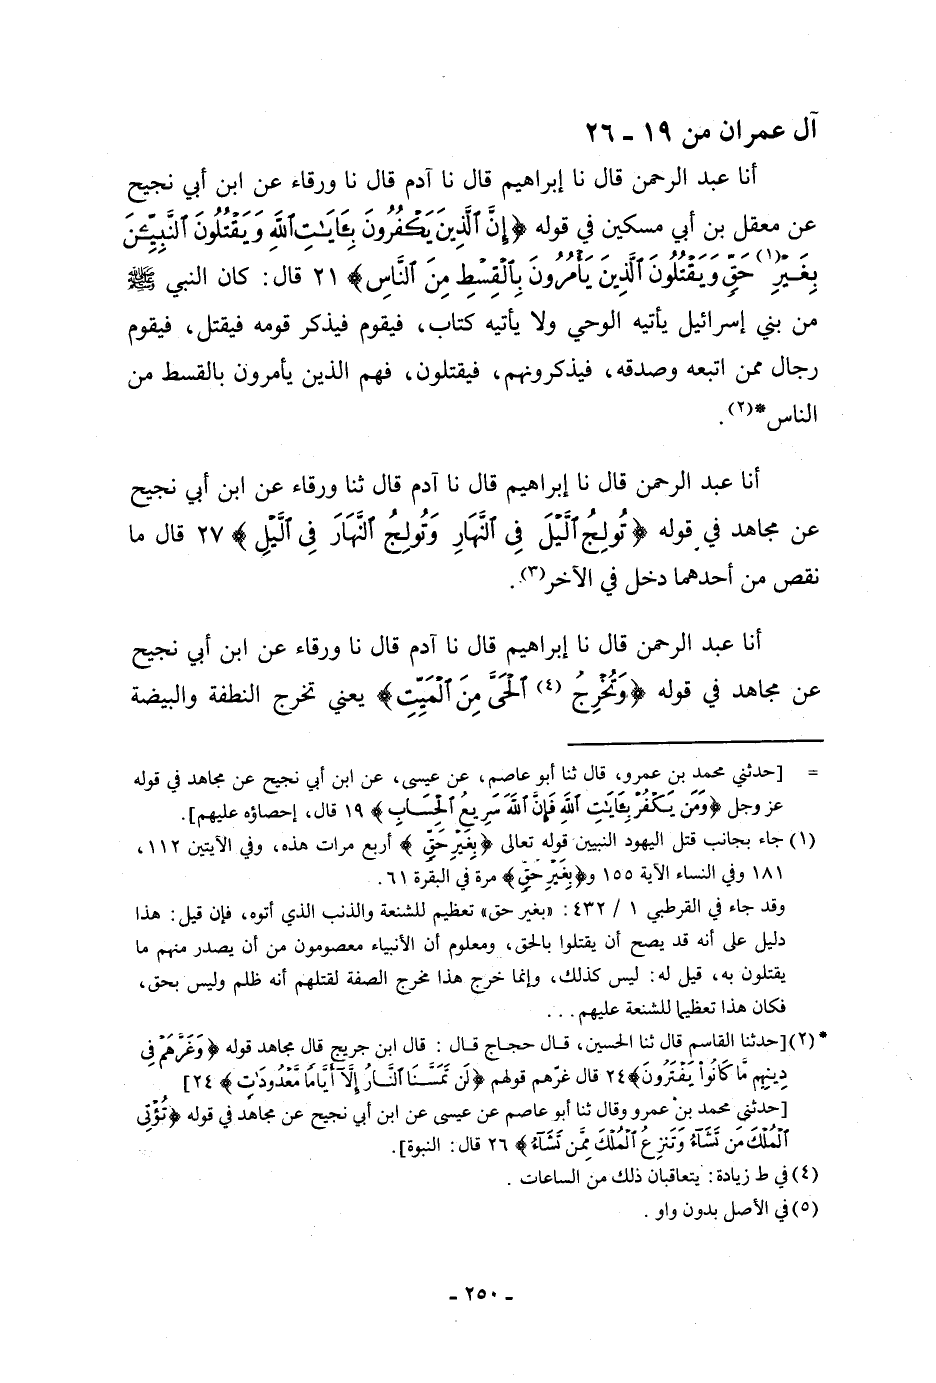 آل عمران من ١٩ ـ ٢٦
أنا عبد الرحمن قال نا إبراهيم قال نا آدم قال نا ورقاء عن ابن أبي نجيح
عن معقل بن أبي مسكين في قوله ﴿إِنَّ ٱلَّذِينَ يَكْفُرُونَ بِـَٔايَـٰتِ ٱللَّهِ وَيَقْتُلُونَ ٱلنَّبِيِّـۧنَ
بِغَيْرِ (١) حَقٍّ وَيَقْتُلُونَ ٱلَّذِينَ يَأْمُرُونَ بِٱلْقِسْطِ مِنَ ٱلنَّاسِ﴾ ٢١ قال: كان النبي ﷺ
من بني إسرائيل يأتيه الوحي ولا يأتيه كتاب، فيقوم فيذكر قومه فيقتل، فيقوم
رجال ممن اتبعه وصدقه، فيذكرونهم، فيقتلون، فهم الذين يأمرون بالقسط من
الناس*(٢).
أنا عبد الرحمن قال نا إبراهيم قال نا آدم قال ثنا ورقاء عن ابن أبي نجيح
عن مجاهد في قوله ﴿تُولِجُ ٱلَّيْلَ فِى ٱلنَّهَارِ وَتُولِجُ ٱلنَّهَارَ فِى ٱلَّيْلِ﴾ ٢٧ قال ما
نقص من أحدهما دخل في الآخر(٣).
أنا عبد الرحمن قال نا إبراهيم قال نا آدم قال نا ورقاء عن ابن أبي نجيح
عن مجاهد في قوله ﴿وَتُخْرِجُ (٤) ٱلْحَىَّ مِنَ ٱلْمَيِّتِ﴾ يعني تخرج النطفة والبيضة
= [حدثني محمد بن عمرو، قال ثنا أبو عاصم، عن عيسى، عن ابن أبي نجيح عن مجاهد في قوله
عز وجل ﴿وَمَن يَكْفُرْ بِـَٔايَـٰتِ ٱللَّهِ فَإِنَّ ٱللَّهَ سَرِيعُ ٱلْحِسَابِ﴾ ١٩ قال، إحصاؤه عليهم].
(١) جاء بجانب قتل اليهود النبيين قوله تعالى ﴿بِغَيْرِ حَقٍّ﴾ أربع مرات هذه، وفي الآيتين ١١٢،
١٨١ وفي النساء الآية ١٥٥ و﴿بِغَيْرِ حَقٍّ﴾ مرة في البقرة ٦١.
وقد جاء في القرطبي ١ / ٤٣٢: «بغير حق» تعظيم للشنعة والذنب الذي أتوه، فإن قيل: هذا
دليل على أنه قد يصح أن يقتلوا بالحق، ومعلوم أن الأنبياء معصومون من أن يصدر منهم ما
يقتلون به، قيل له: ليس كذلك، وإنما خرج هذا مخرج الصفة لقتلهم أنه ظلم وليس بحق،
فكان هذا تعظيما للشنعة عليهم...
*(٢)[حدثنا القاسم قال ثنا الحسين، قال حجاج قال : قال ابن جريج قال مجاهد قوله ﴿وَغَرَّهُمْ فِى
دِينِهِم مَّا كَانُوا۟ يَفْتَرُونَ﴾٢٤ قال غرّهم قولهم ﴿لَن تَمَسَّنَا ٱلنَّارُ إِلَّآ أَيَّامًا مَّعْدُودَٰتٍ﴾ ٢٤]
[حدثني محمد بن عمرو وقال ثنا أبو عاصم عن عيسى عن ابن أبي نجيح عن مجاهد في قوله ﴿تُؤْتِى
ٱلْمُلْكَ مَن تَشَآءُ وَتَنزِعُ ٱلْمُلْكَ مِمَّن تَشَآءُ﴾ ٢٦ قال: النبوة].
(٤) في ط زيادة: يتعاقبان ذلك من الساعات .
(٥) في الأصل بدون واو .
ـ ٢٥٠ ـ